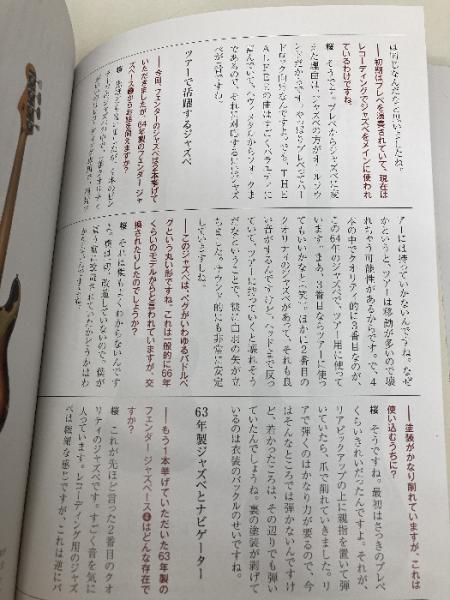 は同じなんだなと思いましたね。
――初期はプレベを演奏されていて、現在は
レコーディングでジャズベをメインに使われ
ているわけですね。
桜　そうです。プレベからジャズベに変
えた理由は、ジャズベの方がオールマイ
ドロック向けなんですよ。でも、THE
ALFEEの曲はすごくバラエティに
富んでいて、ハウスメタルからフォークま
であるので、それに対応するにはジャズ
ベが最適ですね。
ツアーで活躍するジャズベ
――今回、フェンダーのジャズベは2本挙げて
いただきましたが、64年製のフェンダー ジャ
ズベース❷からお話を伺えますか？
ァーには持っていかないんですね。なぜ
かというと、ツアーは移動が多いので壊
れちゃう可能性があるからです。で、4
本の中でクオリティ的に3番目なのが、
この64年のジャズベで、ツアー用に使って
います。まあ、3番目ならツアーに使っ
てもいいかなと（笑）。ほかに2番目の
クオリティのジャズベがあって、それも良
い音がするんですけど、ヘッドまで反っ
ていて、ツアーに持っていくと壊れそう
だなということで、彼に白羽の矢が立
ちました。サウンド的にも非常に安定
していますしね。
――このジャズベは、ペグがいわゆるパドルペ
グという丸い形ですね。これは一般的に66年
くらいのモデルからと言われていますが、交
換されたりしたのでしょうか？
桜　それは僕もよくわからないんです
よ。僕は一切、改造していないので、僕が
買う前に改造されていたかどうかはわ
――塗装がかなり削れていますが、これは
使い込むうちに？
桜　そうですね。最初はさっきのプレベ
くらいきれいだったんですよ。それが、
リアピックアップの上に親指を置いて弾
いていたら、爪で削れていきました。リ
アで弾くのはかなり力が要るので、今
はそんなところでは弾かないんですけ
ど、若かったころは、その辺りでも弾い
ていたんでしょうね。裏の塗装が剥げて
いるのは衣装のバックルのせいですね。
63年製ジャズベとナビゲーター
――もう1本挙げていただいた63年製の
フェンダー ジャズベース❹はどんな存在で
すか？
桜　これが先ほど言った2番目のクオ
リティのジャズベです。すごく音を気に
入っています。レコーディング用のジャズ
ベは繊細な感じですが、これは逆にパ